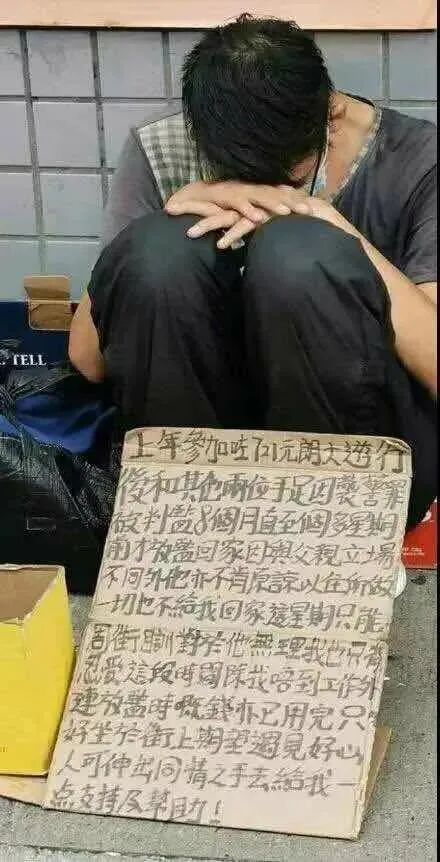 TELL
上年參加咗721元朗大遊行
後和其他兩位手足因襲警罪
被判監8個月直至個多星期
前才放監回家因與父親立場
不同外他亦不肯原諒以往所做
一切也不給我回家這星期只能
周街瞓對於他無理我也只有
忍受這段時間除找唔到工作外
連放監時嘅錢亦已用完只
好坐於街上期望遇見好心
人可伸出同情之手去給我一
點支持及幫助!